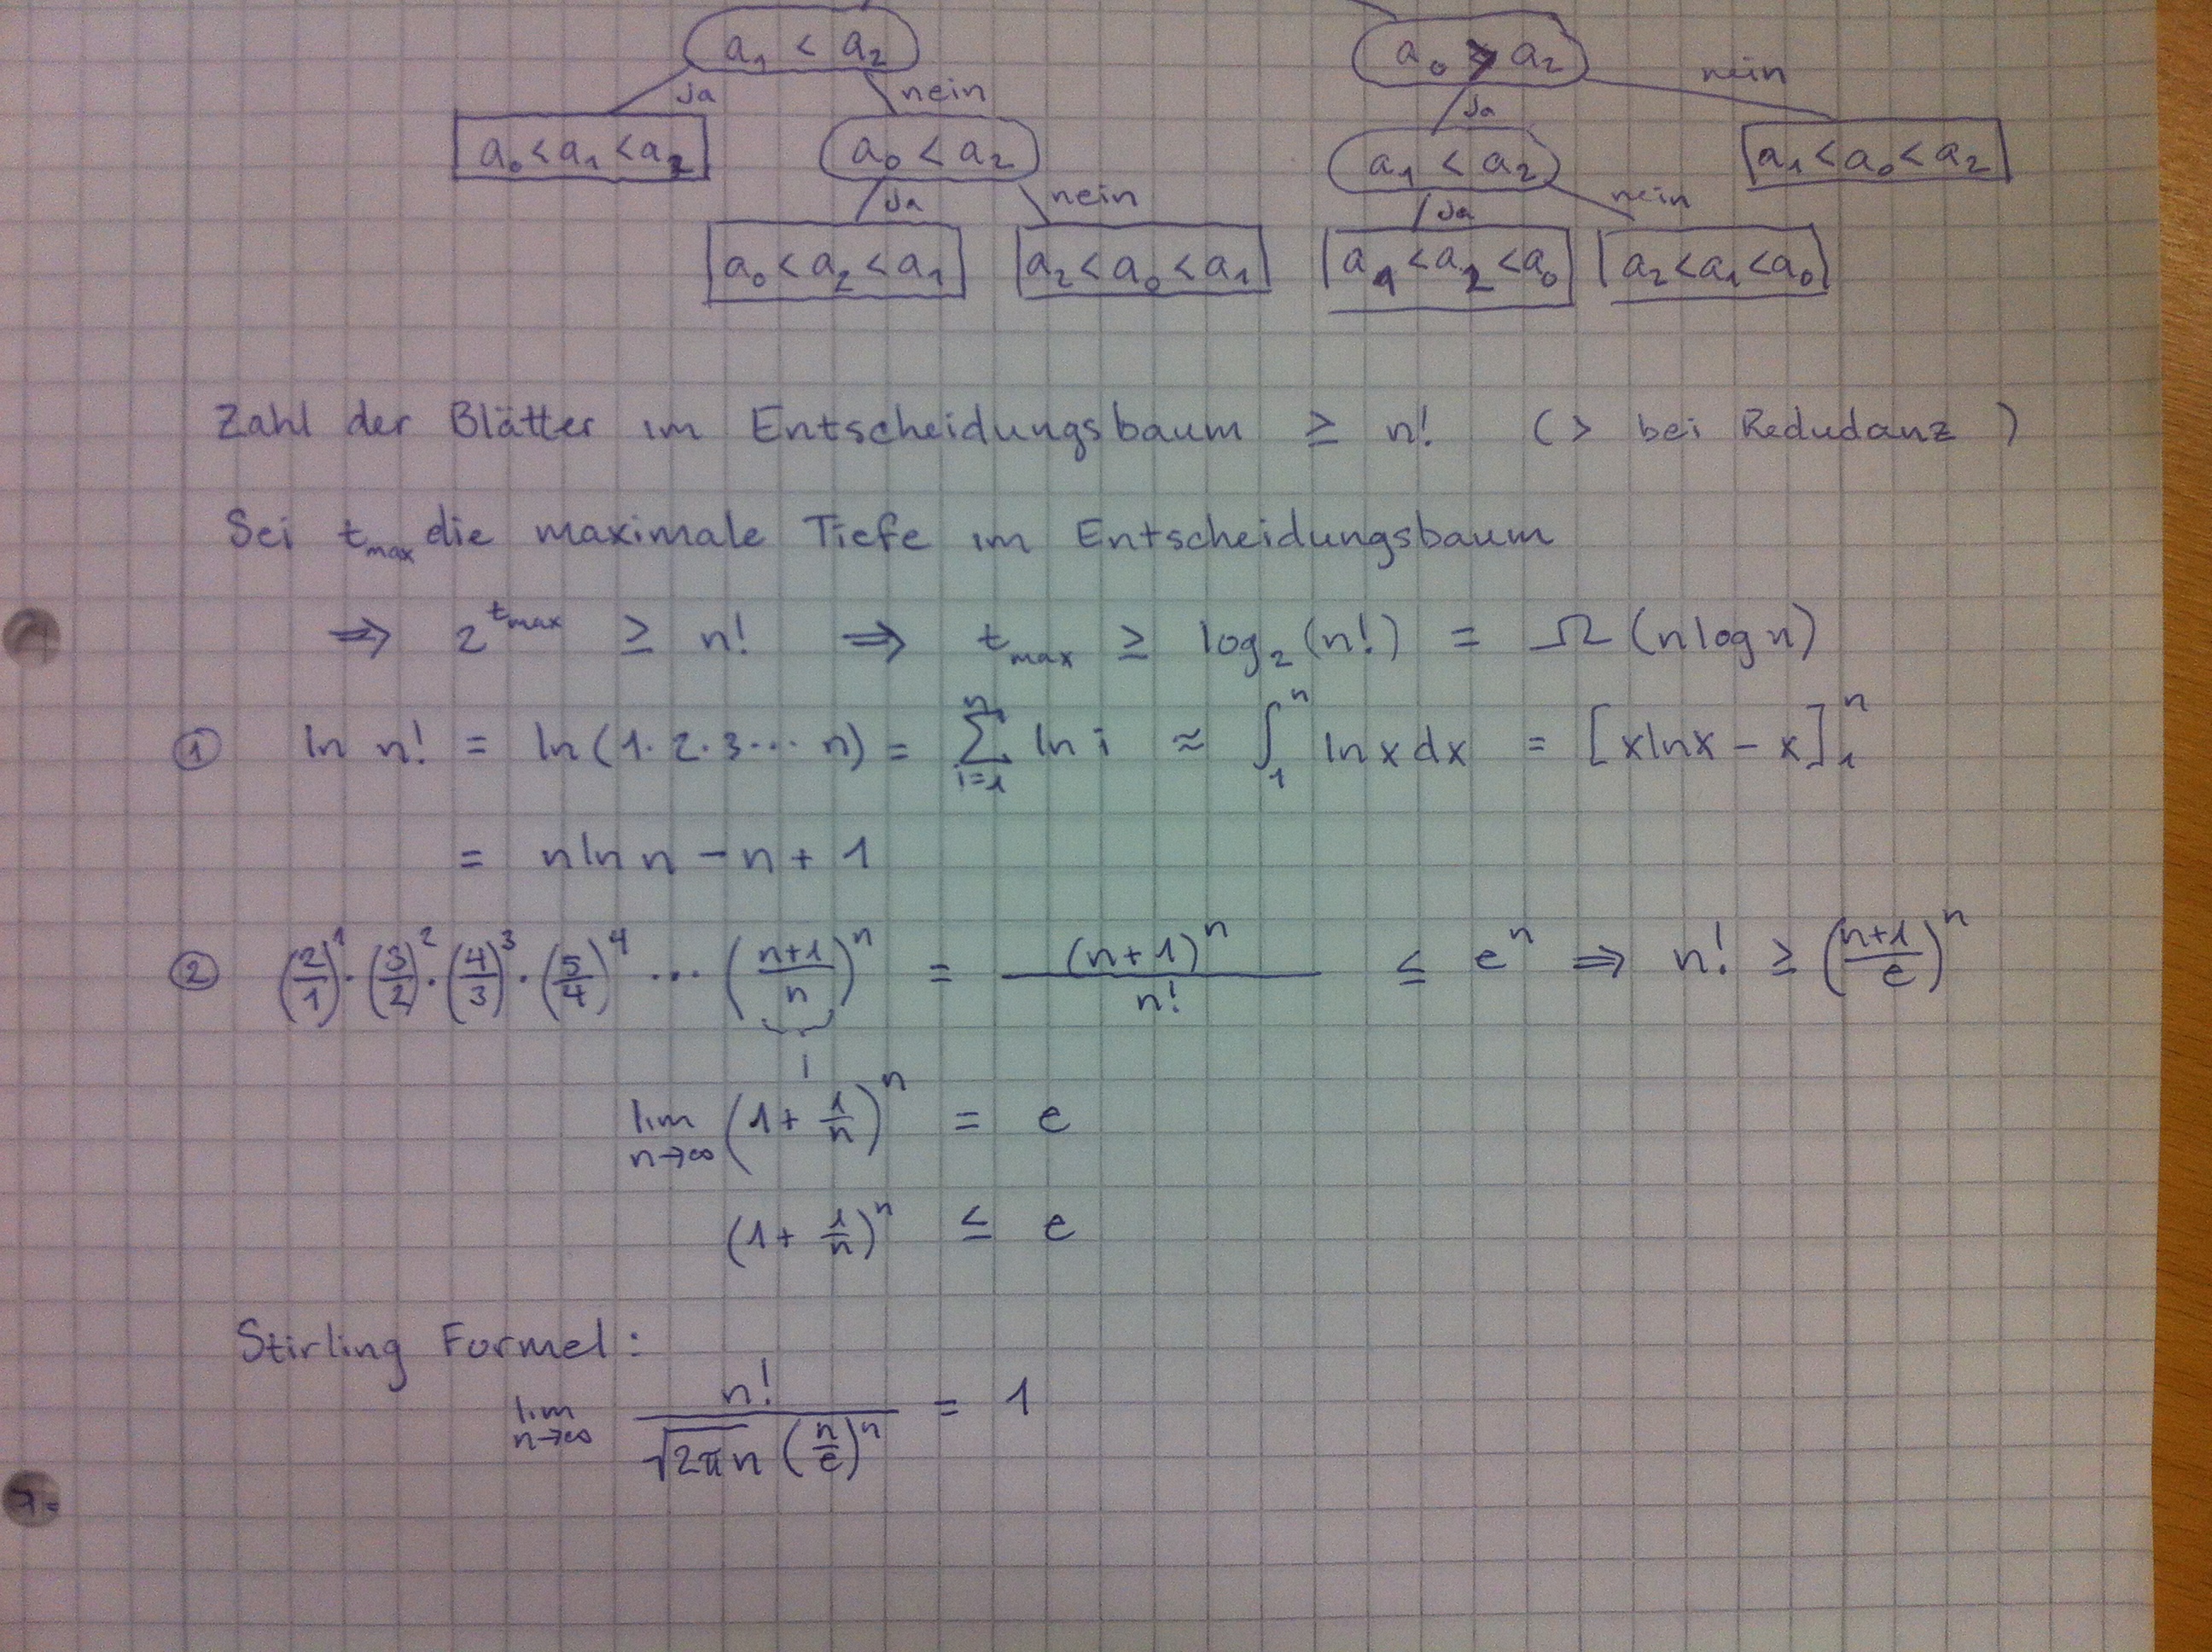 a₁ < a₂ a₀ > a₂
ja nein ja nein
a₀ < a₁ < a₂ a₀ < a₂ a₁ < a₂ a₁ < a₀ < a₂
ja nein ja nein
a₀ < a₂ < a₁ a₂ < a₀ < a₁ a₁ < a₂ < a₀ a₂ < a₁ < a₀
Zahl der Blätter im Entscheidungsbaum ≥ n! (> bei Redudanz )
Sei t_max die maximale Tiefe im Entscheidungsbaum
⇒ 2^(t_max) ≥ n! ⇒ t_max ≥ log₂(n!) = Ω(n log n)
① ln n! = ln(1·2·3··· n) = ∑_{i=1}^{n} ln i ≈ ∫₁ⁿ ln x dx = [x ln x − x]₁ⁿ
= n ln n − n + 1
② (2/1)¹·(3/2)²·(4/3)³·(5/4)⁴ ··· ((n+1)/n)ⁿ = (n+1)ⁿ/n! ≤ eⁿ ⇒ n! ≥ ((n+1)/e)ⁿ
lim_{n→∞} (1 + 1/n)ⁿ = e
(1 + 1/n)ⁿ ≤ e
Stirling Formel:
lim_{n→∞} n!/(√(2πn) (n/e)ⁿ) = 1